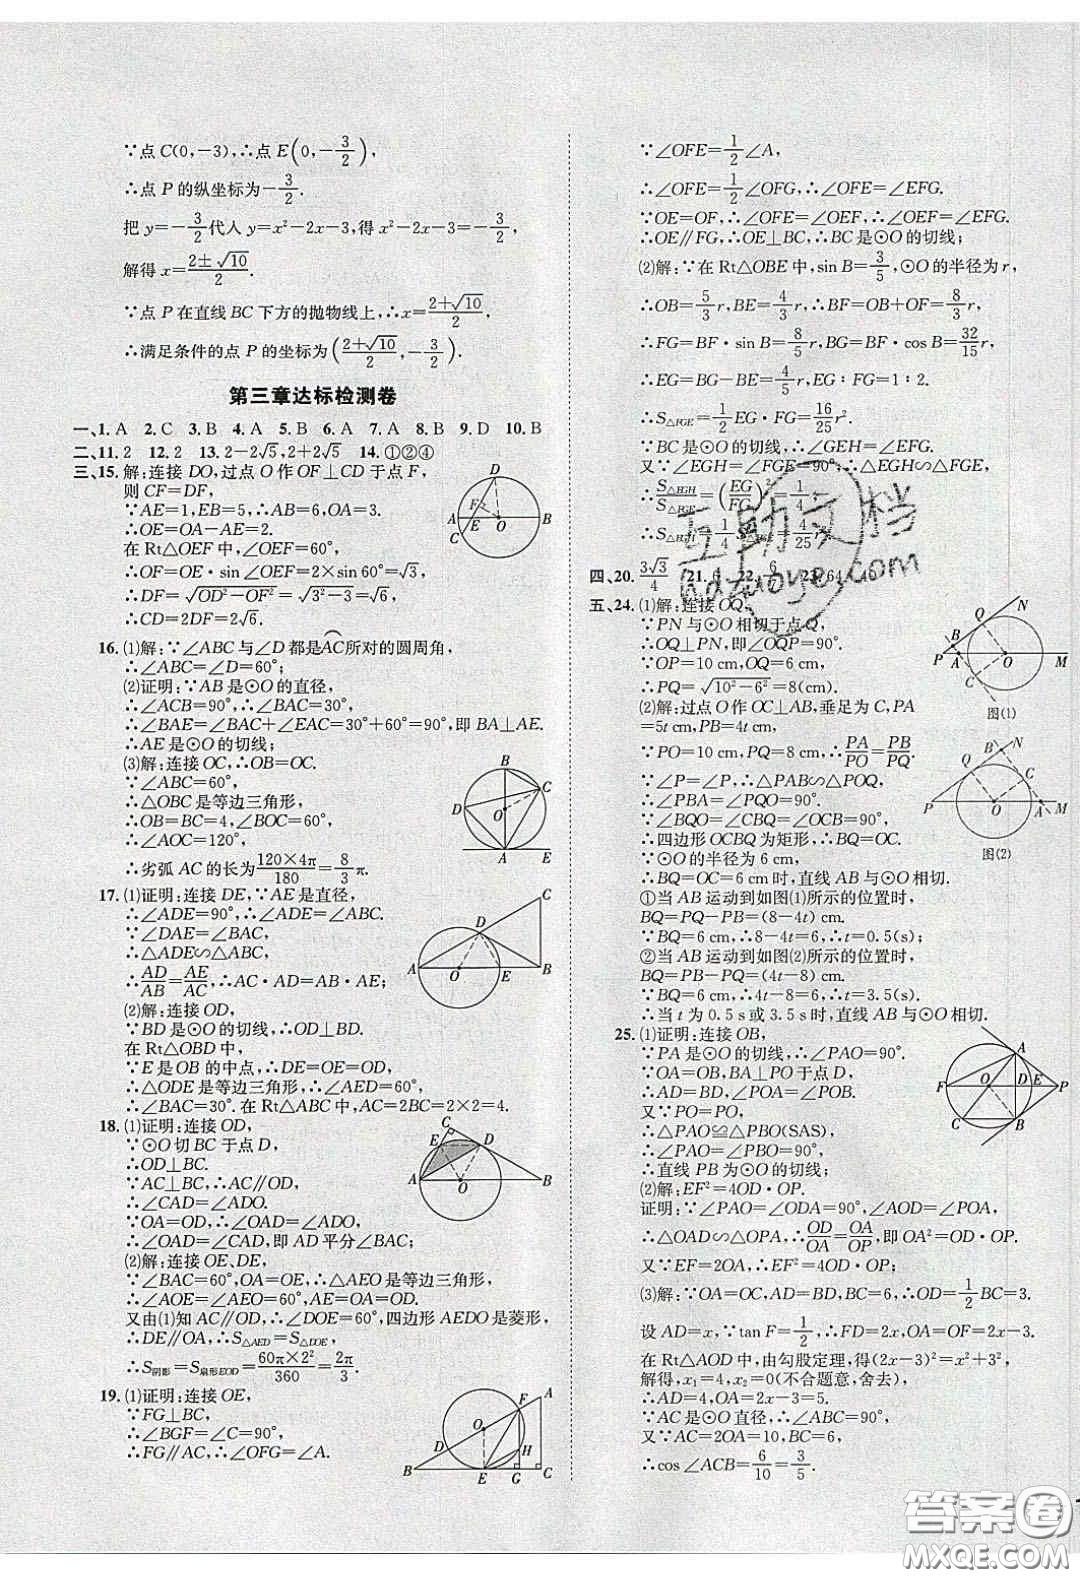 ∵点 C(0,−3),∴点 E(0,−3/2),
∴点 P 的纵坐标为−3/2.
把 y=−3/2代人 y=x²−2x−3,得 x²−2x−3=−3/2,
解得 x=(2±√10)/2.
∵点 P 在直线 BC 下方的抛物线上,∴x=(2+√10)/2,
∴满足条件的点 P 的坐标为((2+√10)/2,−3/2).
第三章达标检测卷
一、1. A 2. C 3. B 4. A 5. B 6. A 7. A 8. B 9. D 10. B
二、11. 2 12. 2 13. 2−2√5,2+2√5 14. ①②④
三、15. 解:连接 DO,过点 O 作 OF⊥CD 于点 F,
则 CF=DF,
∵AE=1,EB=5,∴AB=6,OA=3.
∴OE=OA−AE=2.
在 Rt△OEF 中,∠OEF=60°,
∴OF=OE·sin∠OEF=2×sin 60°=√3,
∴DF=√(OD²−OF²)=√(3²−3)=√6,
∴CD=2DF=2√6.
16. (1)解:∵∠ABC 与∠D 都是AC所对的圆周角,
∴∠ABC=∠D=60°;
(2)证明:∵AB 是⊙O 的直径,
∴∠ACB=90°,∴∠BAC=30°,
∴∠BAE=∠BAC+∠EAC=30°+60°=90°,即 BA⊥AE.
∴AE 是⊙O 的切线;
(3)解:连接 OC,∴OB=OC.
∵∠ABC=60°,
∴△OBC 是等边三角形,
∴OB=BC=4,∠BOC=60°,
∴∠AOC=120°,
∴劣弧 AC 的长为120×4π/180=8/3π.
17. (1)证明:连接 DE,∵AE 是直径,
∴∠ADE=90°,∴∠ADE=∠ABC,
∵∠DAE=∠BAC,
∴△ADE∽△ABC,
∴AD/AB=AE/AC,∴AC·AD=AB·AE;
(2)解:连接 OD,
∵BD 是⊙O 的切线,∴OD⊥BD.
在 Rt△OBD 中,
∵E 是 OB 的中点,∴DE=OE=OD,
∴△ODE 是等边三角形,∴∠AED=60°,
∴∠BAC=30°. 在 Rt△ABC 中,AC=2BC=2×2=4.
18. (1)证明:连接 OD,
∵⊙O 切 BC 于点 D,
∴OD⊥BC.
∵AC⊥BC,∴AC∥OD,
∴∠CAD=∠ADO.
∵OA=OD,∴∠OAD=∠ADO,
∴∠OAD=∠CAD,即 AD 平分∠BAC;
(2)解:连接 OE、DE,
∵∠BAC=60°,OA=OE,∴△AEO 是等边三角形,
∴∠AOE=∠AEO=60°,∴AE=OA=OD.
又由(1)知 AC∥OD,∴∠DOE=60°,四边形 AEDO 是菱形,
∴DE∥OA,∴S△AED=S△DOE,
∴S阴影=S扇形EOD=60π×2²/360=2π/3.
19. (1)证明:连接 OE,
∵FG⊥BC,
∴∠BGF=∠C=90°,
∴FG∥AC,∴∠OFG=∠A.
∵∠OFE=1/2∠A,
∴∠OFE=1/2∠OFG,∴∠OFE=∠EFG.
∵OE=OF,∴∠OFE=∠OEF,∴∠OEF=∠EFG.
∴OE∥FG,∴OE⊥BC,∴BC 是⊙O 的切线;
(2)解:∵在 Rt△OBE 中,sin B=3/5,⊙O 的半径为 r,
∴OB=5/3r,BE=4/3r,∴BF=OB+OF=8/3r,
∴FG=BF·sin B=8/5r,BG=BF·cos B=32/15r,
∴EG=BG−BE=4/5r,EG:FG=1:2.
∴S△FGE=1/2EG·FG=16/25r²,
∵BC 是⊙O 的切线,∴∠GEH=∠EFG.
又∵∠EGH=∠FGE=90°,∴△EGH∽△FGE,
∴S△EGH/S△FGE=(EG/FG)²=1/4,
∴S△EGH=1/4S△FGE=4/25r².
四、20. 3√3/4 21. 6 22. 23. 64
五、24. (1)解:连接 OQ,
∵PN 与⊙O 相切于点 Q,
∴OQ⊥PN,即∠OQP=90°,
∵OP=10 cm,OQ=6 cm,
∴PQ=√(10²−6²)=8(cm)
(2)解:过点 O 作 OC⊥AB,垂足为 C,PA
=5t cm,PB=4t cm,
∵PO=10 cm,PQ=8 cm,∴PA/PO=PB/PQ,
∵∠P=∠P,∴△PAB∽△POQ,
∴∠PBA=∠PQO=90°.
∵∠BQO=∠CBQ=∠OCB=90°,
∴四边形 OCBQ 为矩形,∴BQ=OC.
∵⊙O 的半径为 6 cm,
∴BQ=OC=6 cm时,直线 AB 与⊙O 相切.
①当 AB 运动到如图(1)所示的位置时,
BQ=PQ−PB=(8−4t) cm.
∵BQ=6 cm,∴8−4t=6,∴t=0.5(s);
②当 AB 运动到如图(2)所示的位置时,
BQ=PB−PQ=(4t−8) cm.
∵BQ=6 cm,∴4t−8=6,∴t=3.5(s).
∴当 t 为 0.5 s或 3.5 s时,直线 AB 与⊙O 相切.
25. (1)证明:连接 OB,
∵PA 是⊙O 的切线,∴∠PAO=90°.
∵OA=OB,BA⊥PO 于点 D,
∴AD=BD,∠POA=∠POB.
又∵PO=PO,
∴△PAO≌△PBO(SAS),
∴∠PAO=∠PBO=90°,
∴直线 PB 为⊙O 的切线;
(2)解:EF²=4OD·OP.
证明:∵∠PAO=∠ODA=90°,∠AOD=∠POA,
∴△OAD∽△OPA,∴OD/OA=OA/OP,即 OA²=OD·OP,
又∵EF=2OA,∴EF²=4OD·OP;
(3)解:∵OA=OC,AD=BD,BC=6,∴OD=1/2BC=3.
设 AD=x,∵tan F=1/2,∴FD=2x,OA=OF=2x−3.
在 Rt△AOD 中,由勾股定理,得(2x−3)²=x²+3²,
解得,x₁=4,x₂=0(不合题意,舍去),
∴AD=4,OA=2x−3=5.
∵AC 是⊙O直径,∴∠ABC=90°,
又∵AC=2OA=10,BC=6,
∴cos∠ACB=6/10=3/5.
图(1)
图(2)
互助文档
答案圈
MXQE.COM